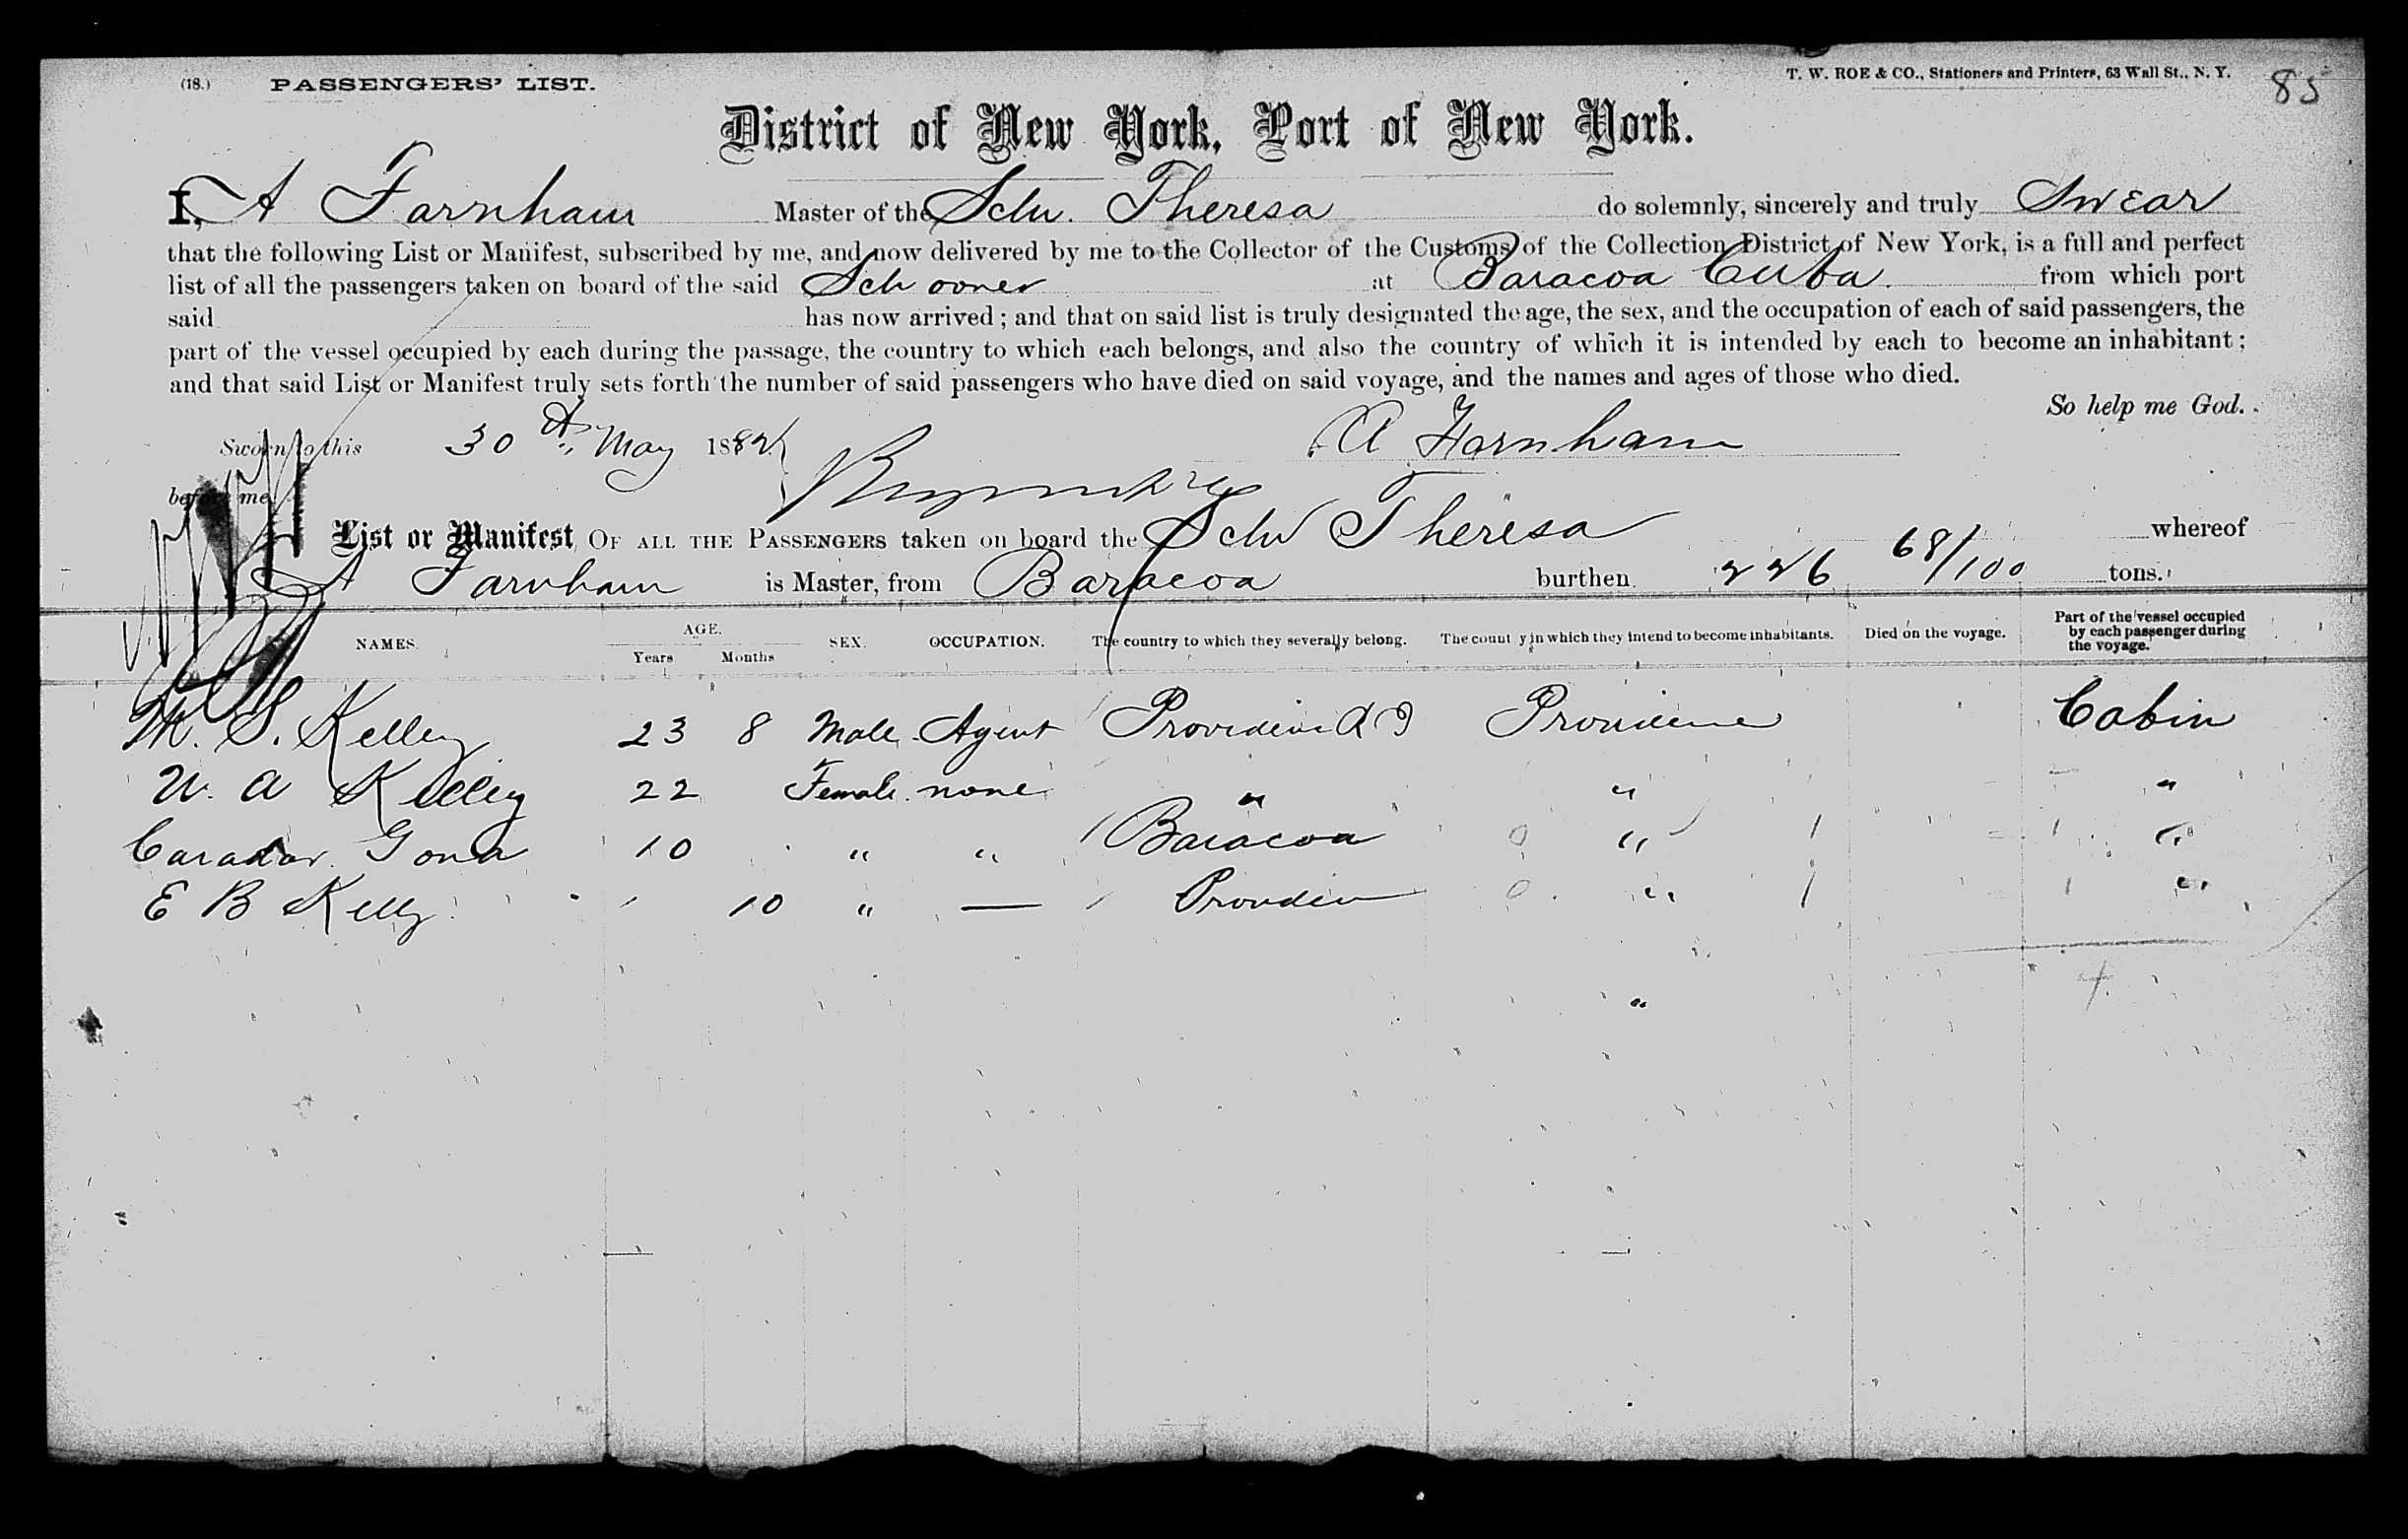 (18.) PASSENGERS' LIST.
T. W. ROE & CO., Stationers and Printers, 63 Wall St., N. Y. 85
District of New York, Port of New York.
I, A Farnham Master of the Schr. Theresa do solemnly, sincerely and truly Swear
that the following List or Manifest, subscribed by me, and now delivered by me to the Collector of the Customs of the Collection District of New York, is a full and perfect
list of all the passengers taken on board of the said Schooner at Baracoa Cuba. from which port
said has now arrived; and that on said list is truly designated the age, the sex, and the occupation of each of said passengers, the
part of the vessel occupied by each during the passage, the country to which each belongs, and also the country of which it is intended by each to become an inhabitant;
and that said List or Manifest truly sets forth the number of said passengers who have died on said voyage, and the names and ages of those who died.
So help me God.
Sworn to this 30th May 1882 A Farnham
before me
List or Manifest OF ALL THE PASSENGERS taken on board the Schr Theresa whereof
A Farnham is Master, from Baracoa burthen 226 68/100 tons.
NAMES. AGE. Years Months SEX. OCCUPATION. The country to which they severally belong. The country in which they intend to become inhabitants. Died on the voyage. Part of the vessel occupied by each passenger during the voyage.
M. S. Kelley 23 8 Male Agent Providence R I Providence Cabin
W. A Kelley 22 Female none " " "
Gona 10 " " Baracoa " "
E B Kelly 10 " — Providen " "
4